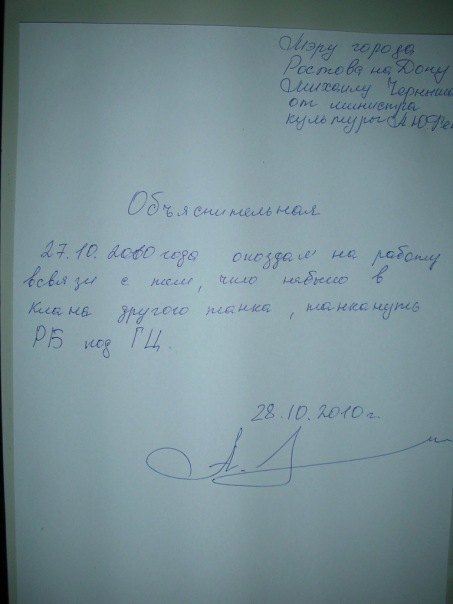 Мэру города
Ростова на Дону
Михаилу
от министра
культуры
Объяснительная
27.10.2010 года опоздал на работу
всвязи с тем, что небыло в
клана другого танка, танкануть
РБ под ГЦ.
28.10.2010г.